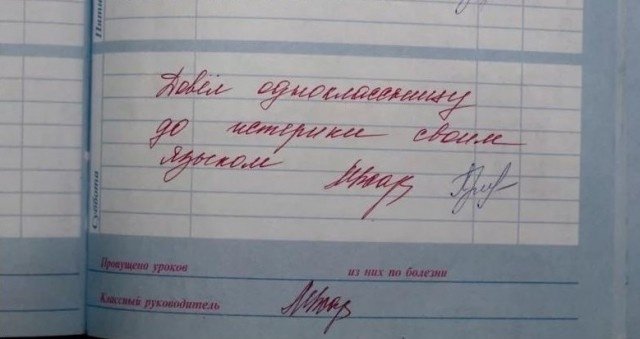 Пятница
Довёл одноклассницу
до истерики своим
языком
Суббота
Пропущено уроков из них по болезни
Классный руководитель